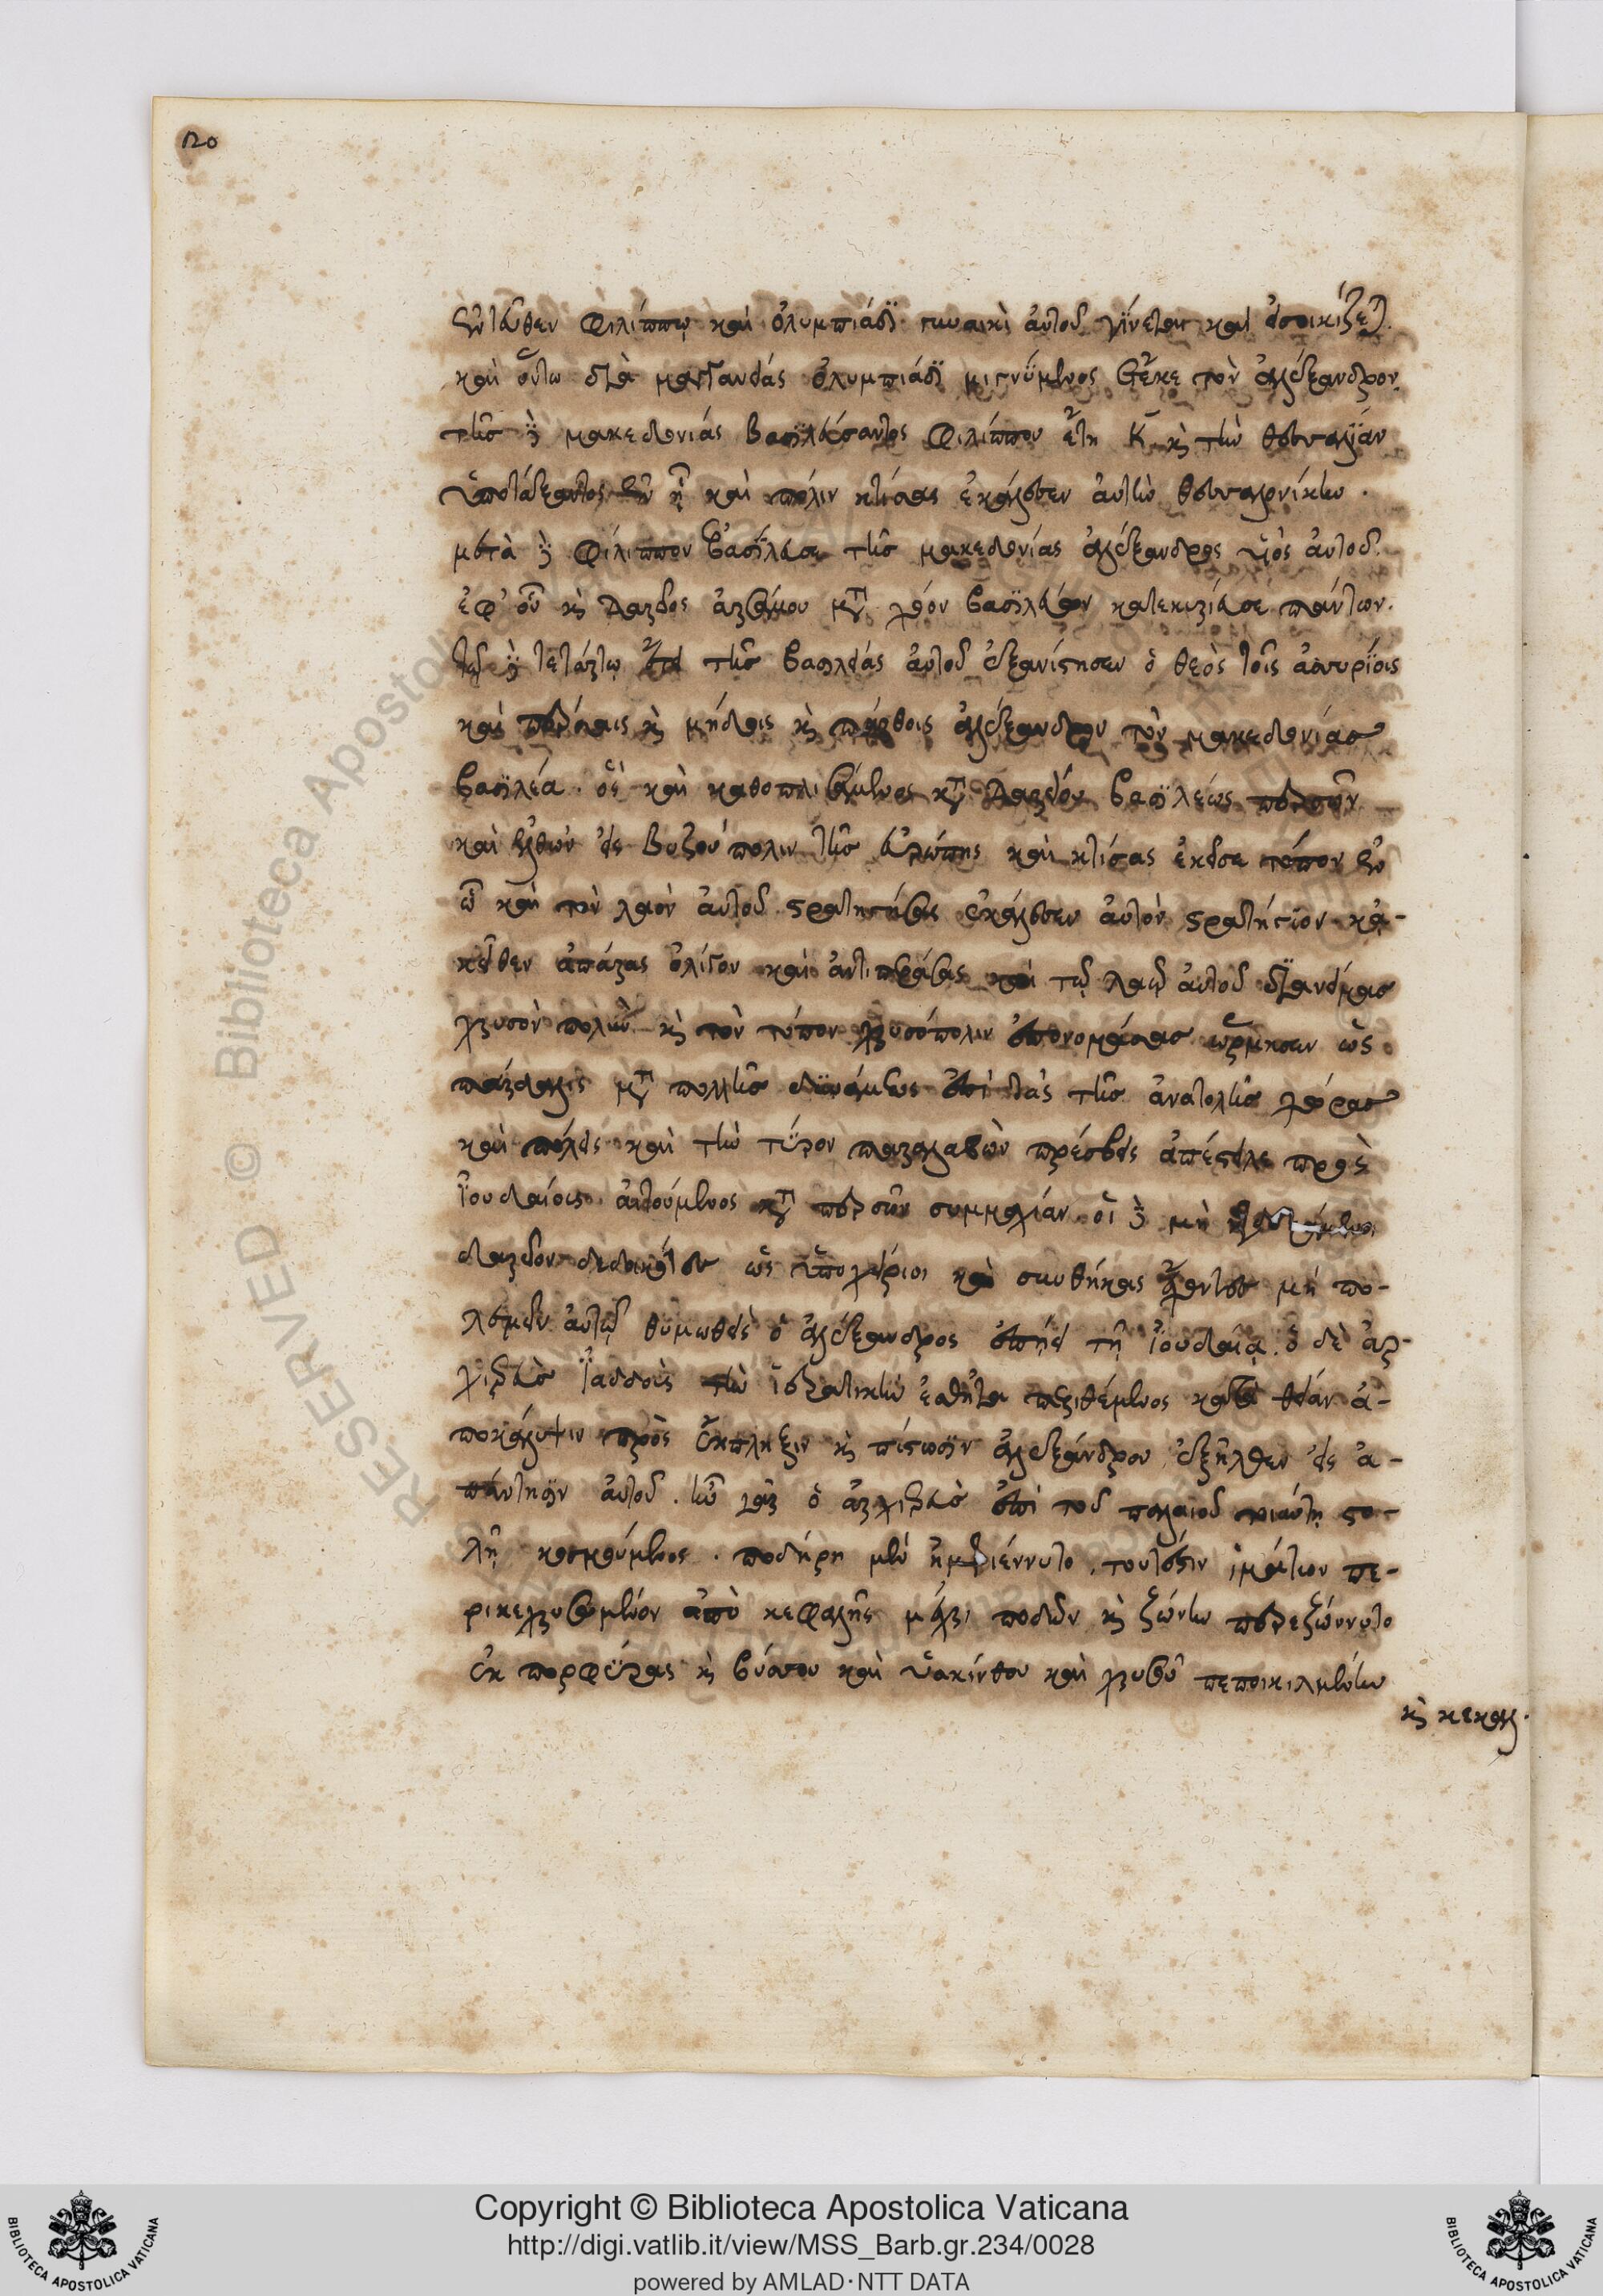 120
ἐντεῦθεν φιλίππῳ καὶ ὀλυμπιάδϊ γυναικὶ αὐτοῦ γίνεται καὶ εἰσοικίζεται.
καὶ οὕτω διὰ μαγγανείας ὀλυμπιάδϊ μιγνύμενος ἔτεκε τὸν ἀλέξανδρον.
τῆς δὲ μακεδονίας βασιλεύσαντος φιλίππου ἔτη κ καὶ τὴν θεσσαλίαν
ὑποτάξαντος ἐν ᾗ καὶ πόλιν κτίσας ἐκάλεσεν αὐτὴν θεσσαλονίκην.
μετὰ δὲ φίλιππον ἐβασίλευσε τῆς μακεδονίας ἀλέξανδρος υἱὸς αὐτοῦ.
ἐφ' οὗ καὶ δαρεῖος ἀρσάμου τῶν βασιλέων κατεκυρίευσε πάντων.
τῷ δὲ τετάρτῳ ἔτει τῆς βασιλείας αὐτοῦ ἐξανέστησεν ὁ θεὸς τοῖς ἀσσυρίοις
καὶ πέρσαις καὶ μήδοις καὶ πάρθοις ἀλέξανδρον τὸν μακεδονίας
βασιλέα. ὃς καὶ καθοπλισάμενος κατὰ δαρείου βασιλέως περσῶν
καὶ ἐλθὼν εἰς βυζούπολιν τῆς εὐρώπης καὶ κτίσας ἐκεῖσε τόπον ἐν
ᾧ καὶ τὸν λαὸν αὐτοῦ στρατηγήσας ἐκάλεσεν αὐτὸν στρατήγιον. κἀ-
κεῖθεν ἀπάρας ὀλίγον καὶ ἀντιπεράσας καὶ τῷ λαῷ αὐτοῦ διανείμας
χρυσὸν πολὺν καὶ τὸν τόπον χρυσόπολιν ἐπονομάσας ὥρμησεν ὡς
πάρδαλις μετὰ πολλῆς δυνάμεως ἐπὶ τὰς τῆς ἀνατολῆς χώρας
καὶ πόλεις καὶ τὴν τύρον παραλαβὼν πρέσβεις ἀπέστειλε πρὸς
ἰουδαίοις. αἰτούμενος κατὰ περσῶν συμμαχίαν. οἱ δὲ μὴ
δαρεῖον δεδοικότες ὡς ὑποχείριοι καὶ συνθήκας ἔχοντες μὴ πο-
λεμεῖν αὐτῷ θυμωθεὶς ὁ ἀλέξανδρος ἐπῄει τῇ ἰουδαίᾳ. ὁ δὲ ἀρ-
χιερεὺς ἰαδδοὺς τὴν ἱερατικὴν ἐσθῆτα περιθέμενος κατὰ θείαν ἀ-
ποκάλυψιν πρὸς ἔκπληξιν καὶ πίστωσιν ἀλεξάνδρου ἐξῆλθεν εἰς ἀ-
πάντησιν αὐτοῦ. ἦν γὰρ ὁ ἀρχιερεὺς ἐπὶ τοῦ παλαιοῦ τοιαύτῃ στο-
λῇ κοσμούμενος. ποδήρη μὲν ἠμφιέννυτο, τουτέστιν ἱμάτιον πε-
ρικεχυμένον ἀπὸ κεφαλῆς μέχρι ποδῶν καὶ ζώνην περιεζώννυτο
ἐκ πορφύρας καὶ βύσσου καὶ ὑακίνθου καὶ χρυσοῦ πεποικιλμένην
καὶ κεκαλ.
RESERVED © Biblioteca Apostolica Vaticana
Copyright © Biblioteca Apostolica Vaticana
http://digi.vatlib.it/view/MSS_Barb.gr.234/0028
powered by AMLAD·NTT DATA
BIBLIOTECA APOSTOLICA VATICANA
BIBLIOTECA APOSTOLICA VATICANA